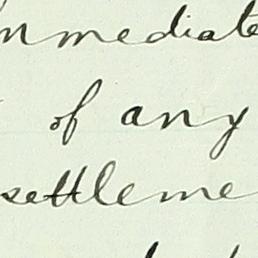 mmediate
of any
settleme